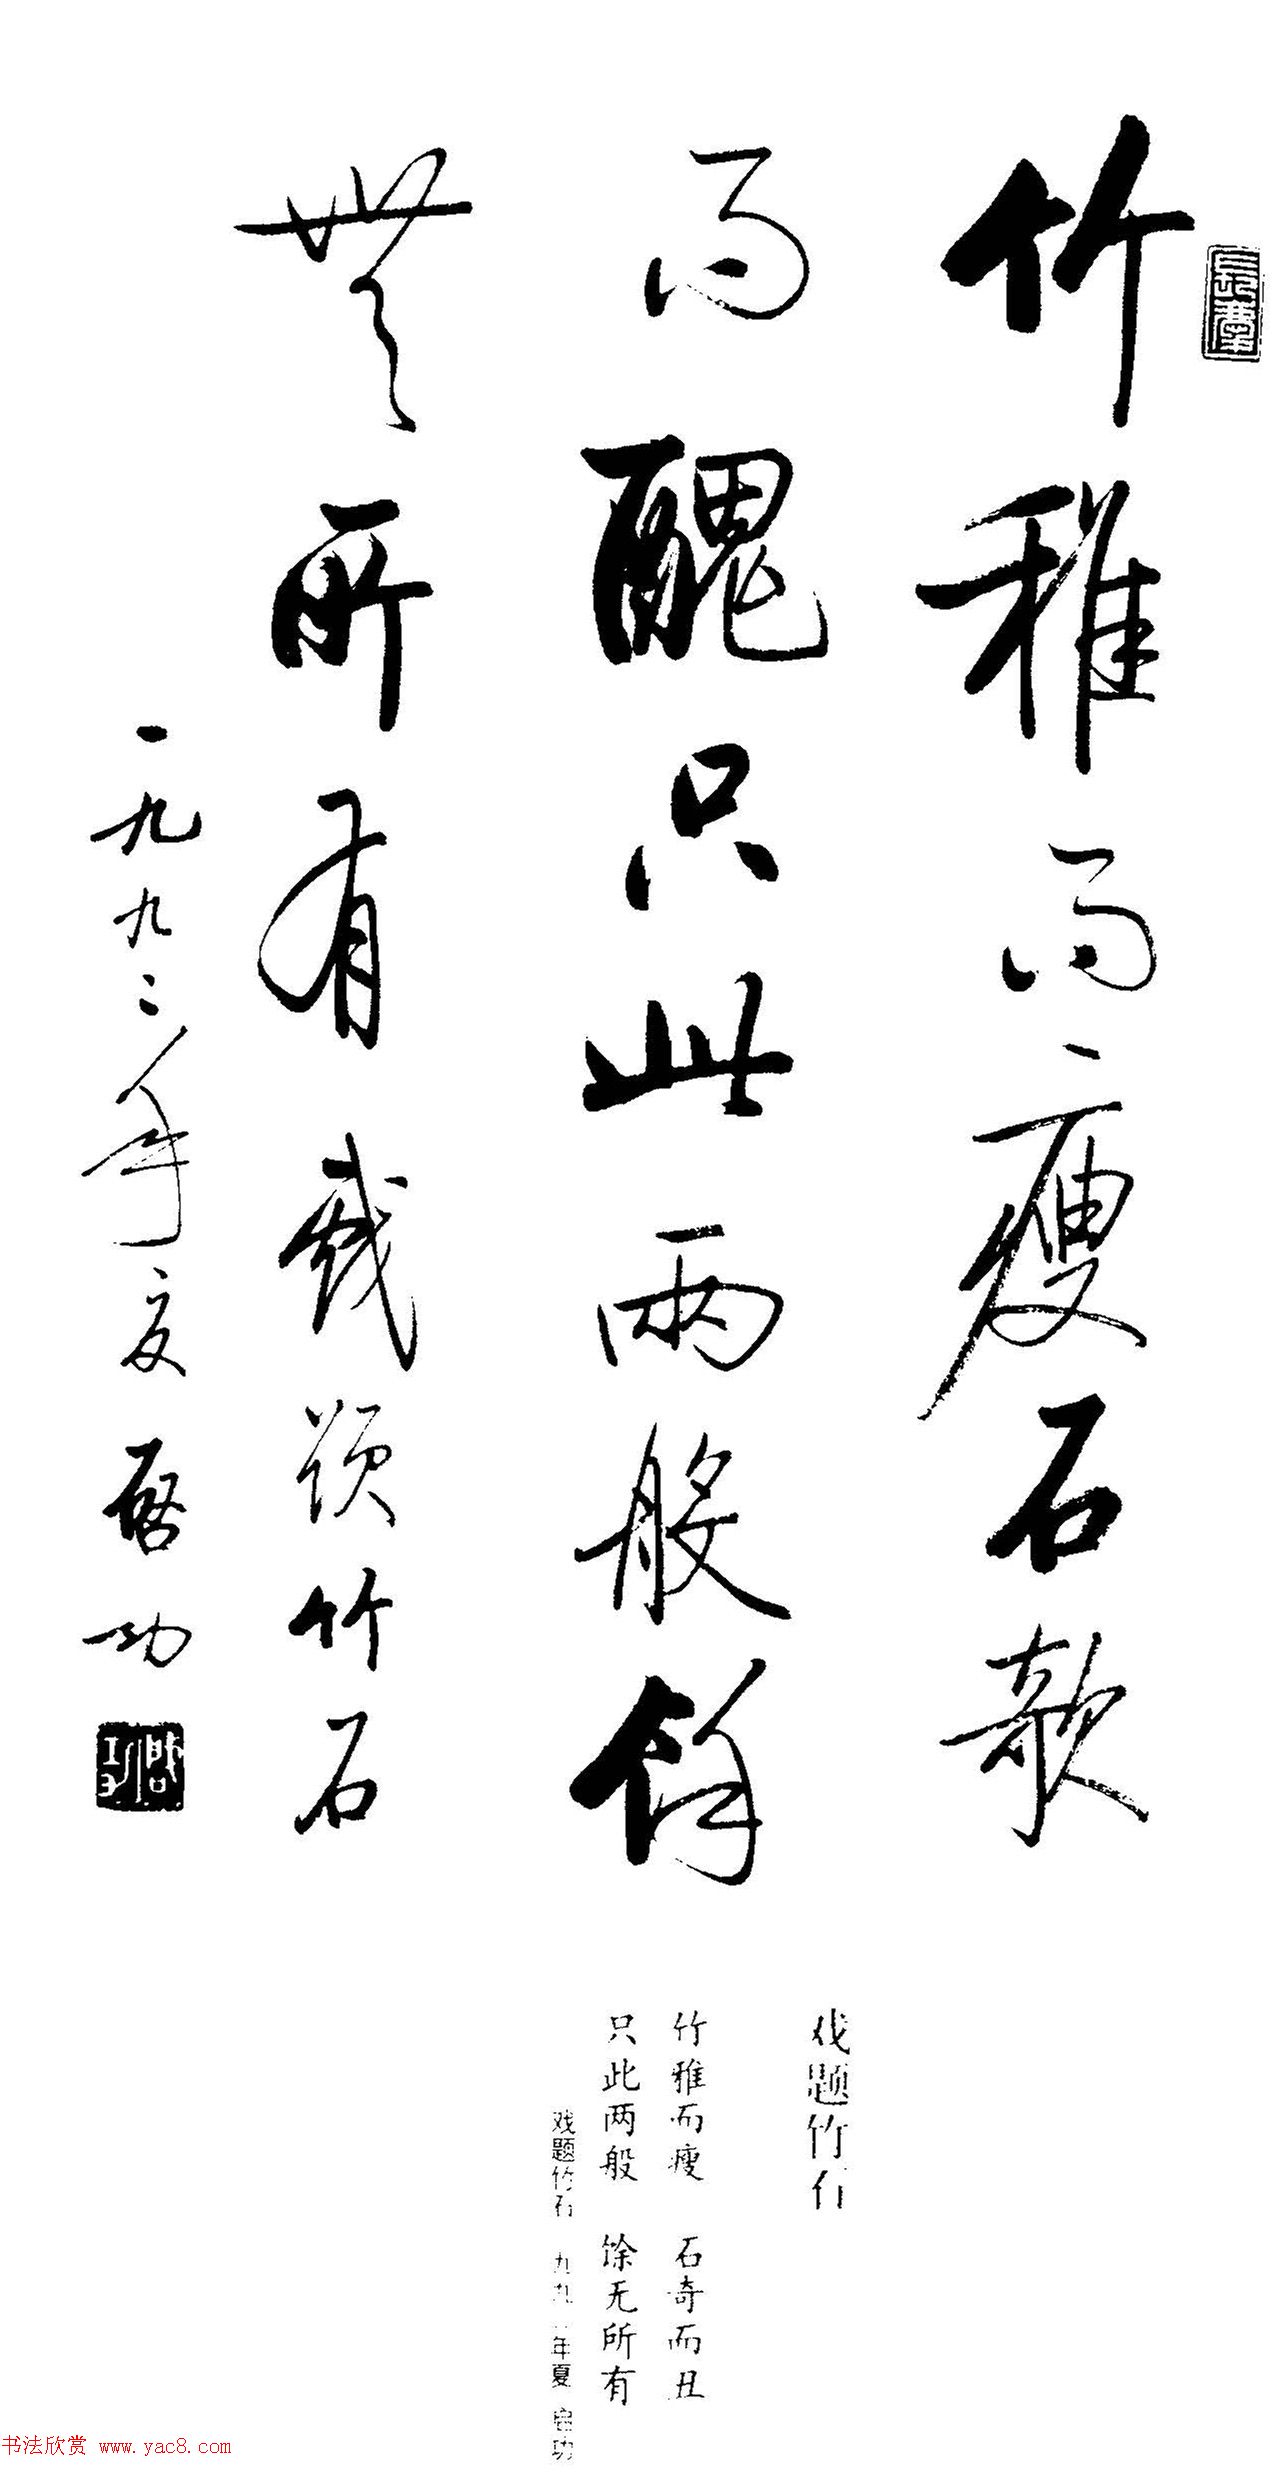 竹雅而瘦石欹
而醜只此兩般餘
無所有戲題竹石
一九九二年夏 啓功
啓功
戏题竹石
竹雅而瘦 石奇而丑
只此两般 馀无所有
戏题竹石 一九九二年夏 启功
书法欣赏 www.yac8.com